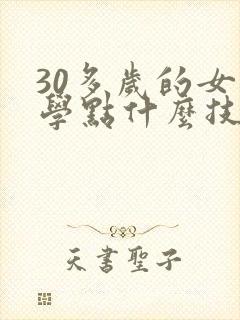 30多歲的女
學點什麼技
天書聖子